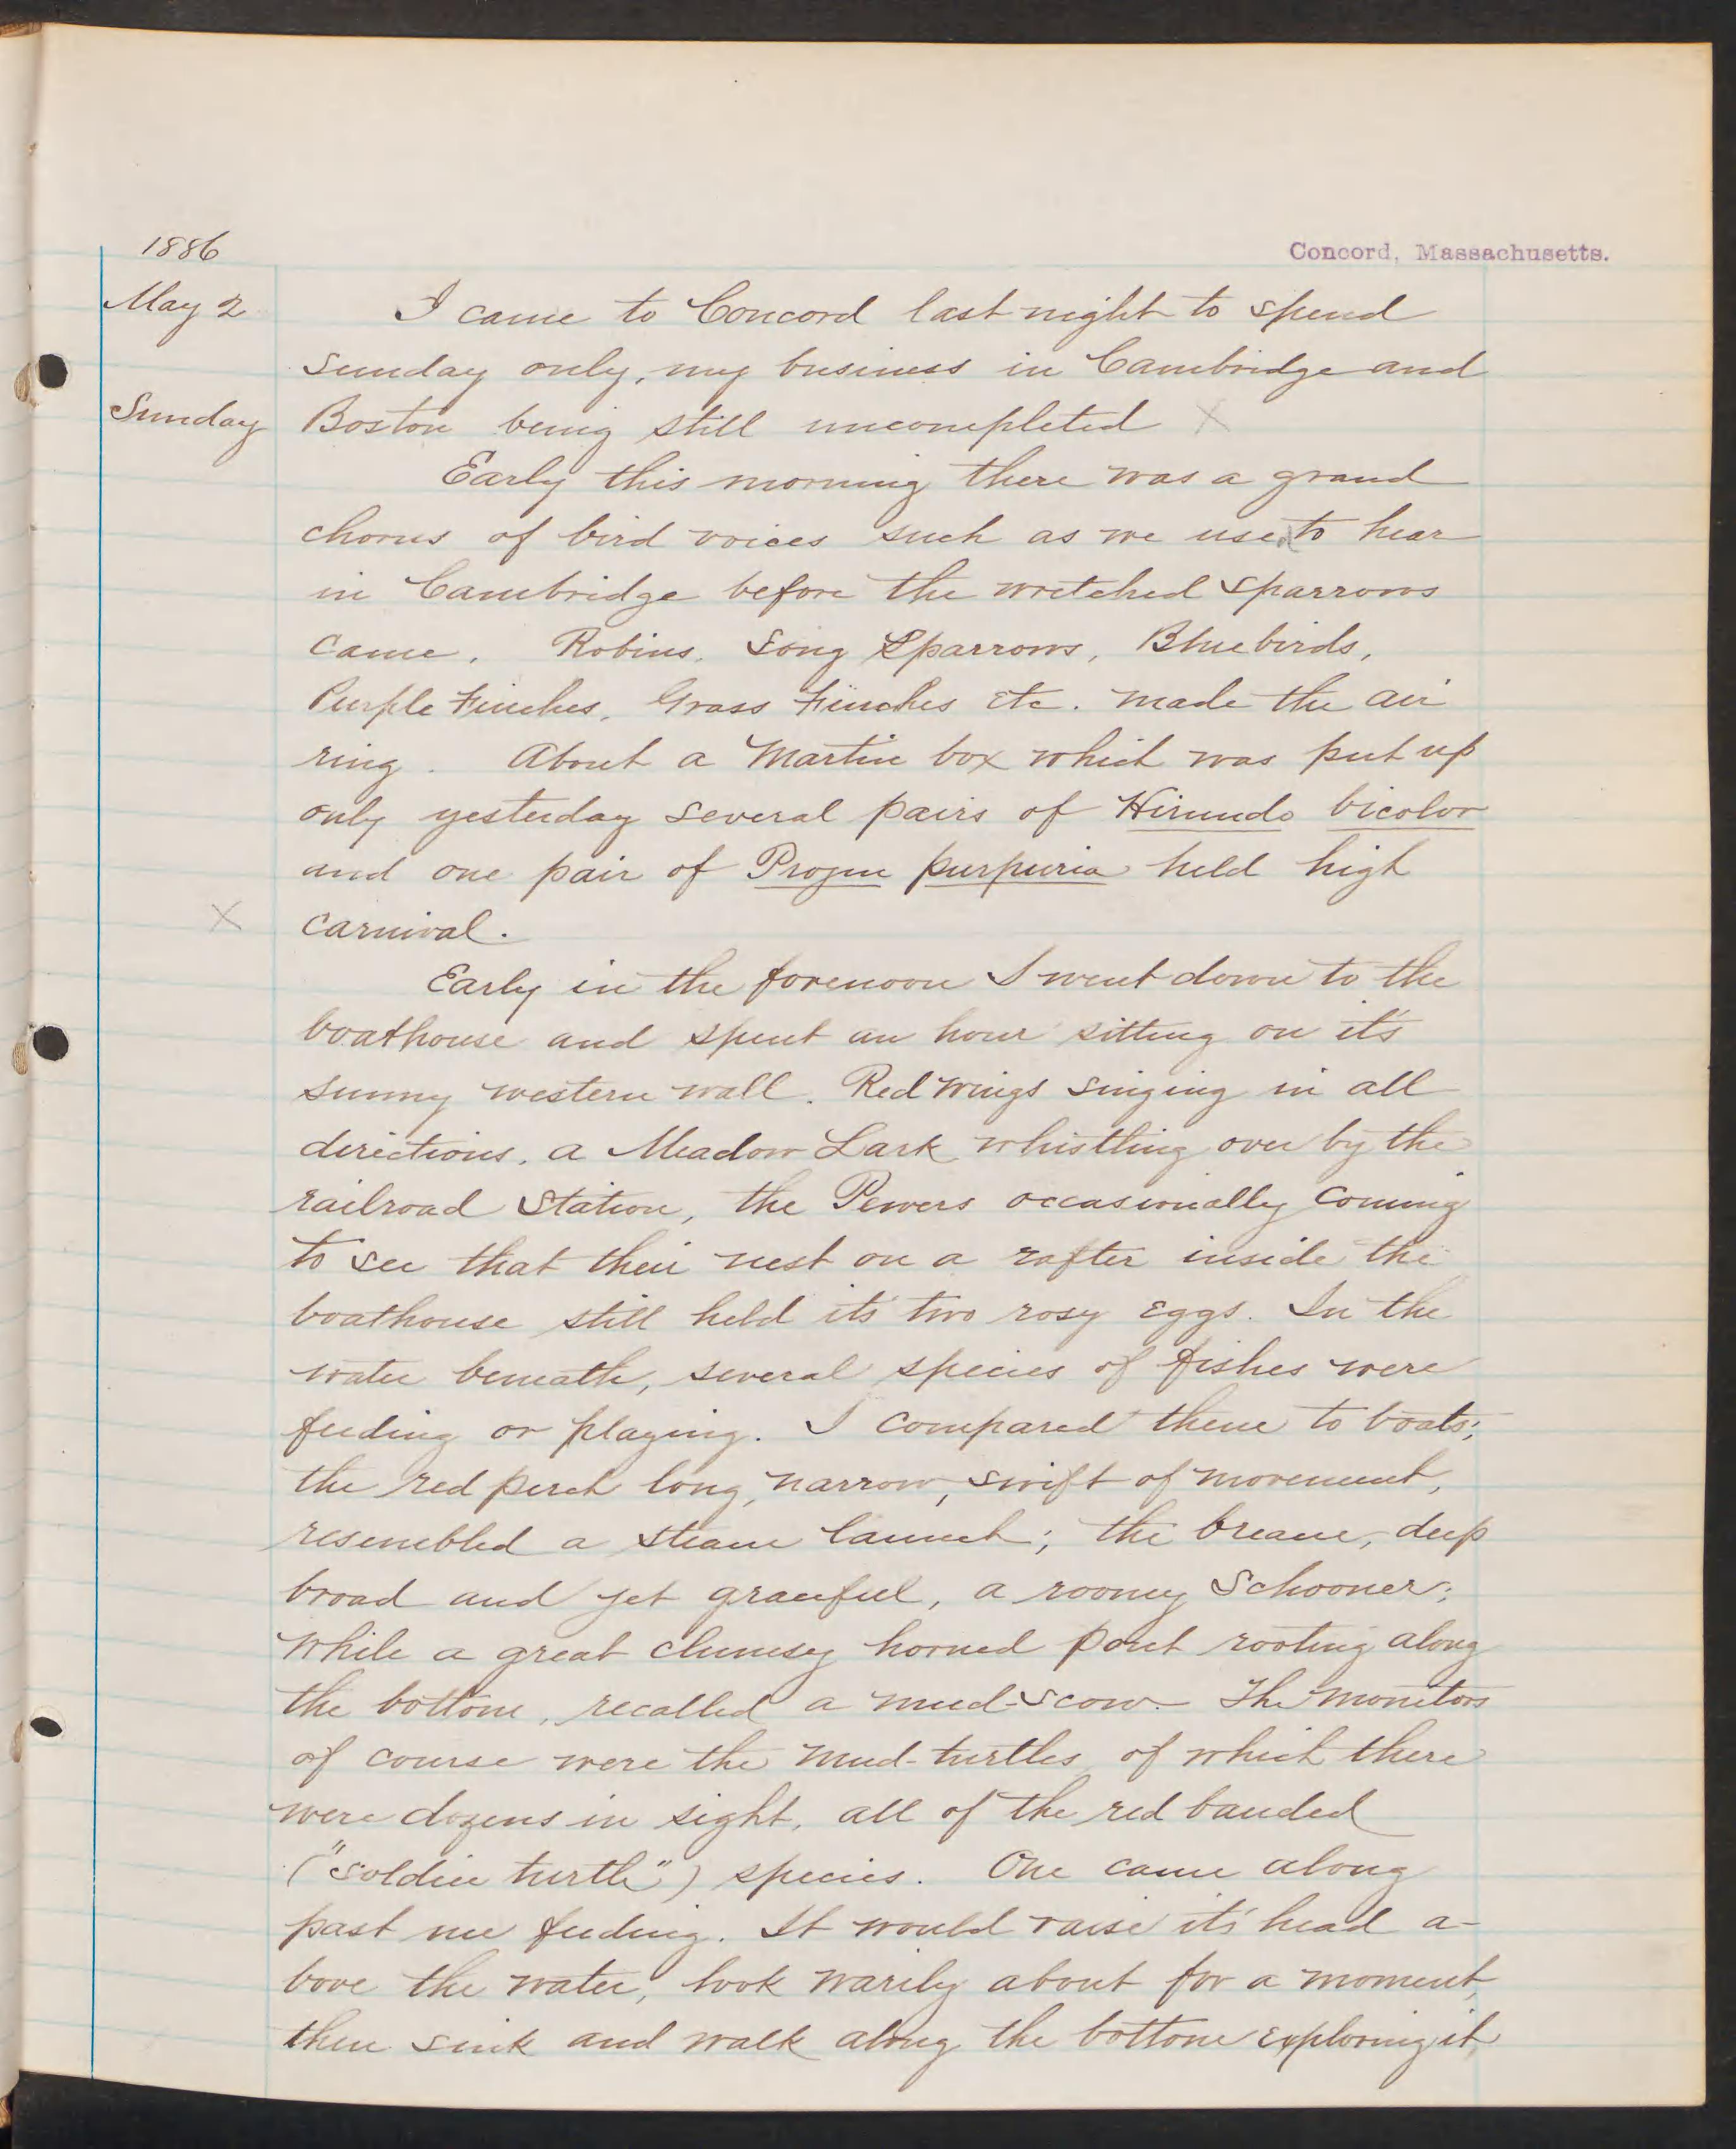 1886
Concord, Massachusetts.
May 2
I came to Concord last night to spend
Sunday only, my business in Cambridge and
Sunday
Boston being still uncompleted X
Early this morning there was a grand
chorus of bird voices such as we used to hear
in Cambridge before the wretched sparrows
came. Robins, Song Sparrows, Bluebirds,
Purple Finches, Grass Finches etc. made the air
ring. About a Martin box which was put up
only yesterday several pairs of Hirundo bicolor
and one pair of Progne purpuria held high
X
carnival.
Early in the forenoon I went down to the
boathouse and spent an hour sitting on it's
sunny western wall. Redwings singing in all
directions, a Meadow Lark whistling over by the
railroad station, the Pewees occasionally coming
to see that their nest on a rafter inside the
boathouse still held its two rosy eggs. In the
water beneath, several species of fishes were
feeding or playing. I compared them to boats;
the red perch long, narrow, swift of movement,
resembled a steam launch; the bream, deep
broad and yet graceful, a roomy Schooner;
while a great clumsy horned pout rooting along
the bottom, recalled a mud-scow. The monitors
of course were the mud-turtles of which there
were dozens in sight, all of the red banded
("soldier turtle") species. One came along
past me feeding. It would raise it's head a-
bove the water, look warily about for a moment,
then sink and walk along the bottom exploring it